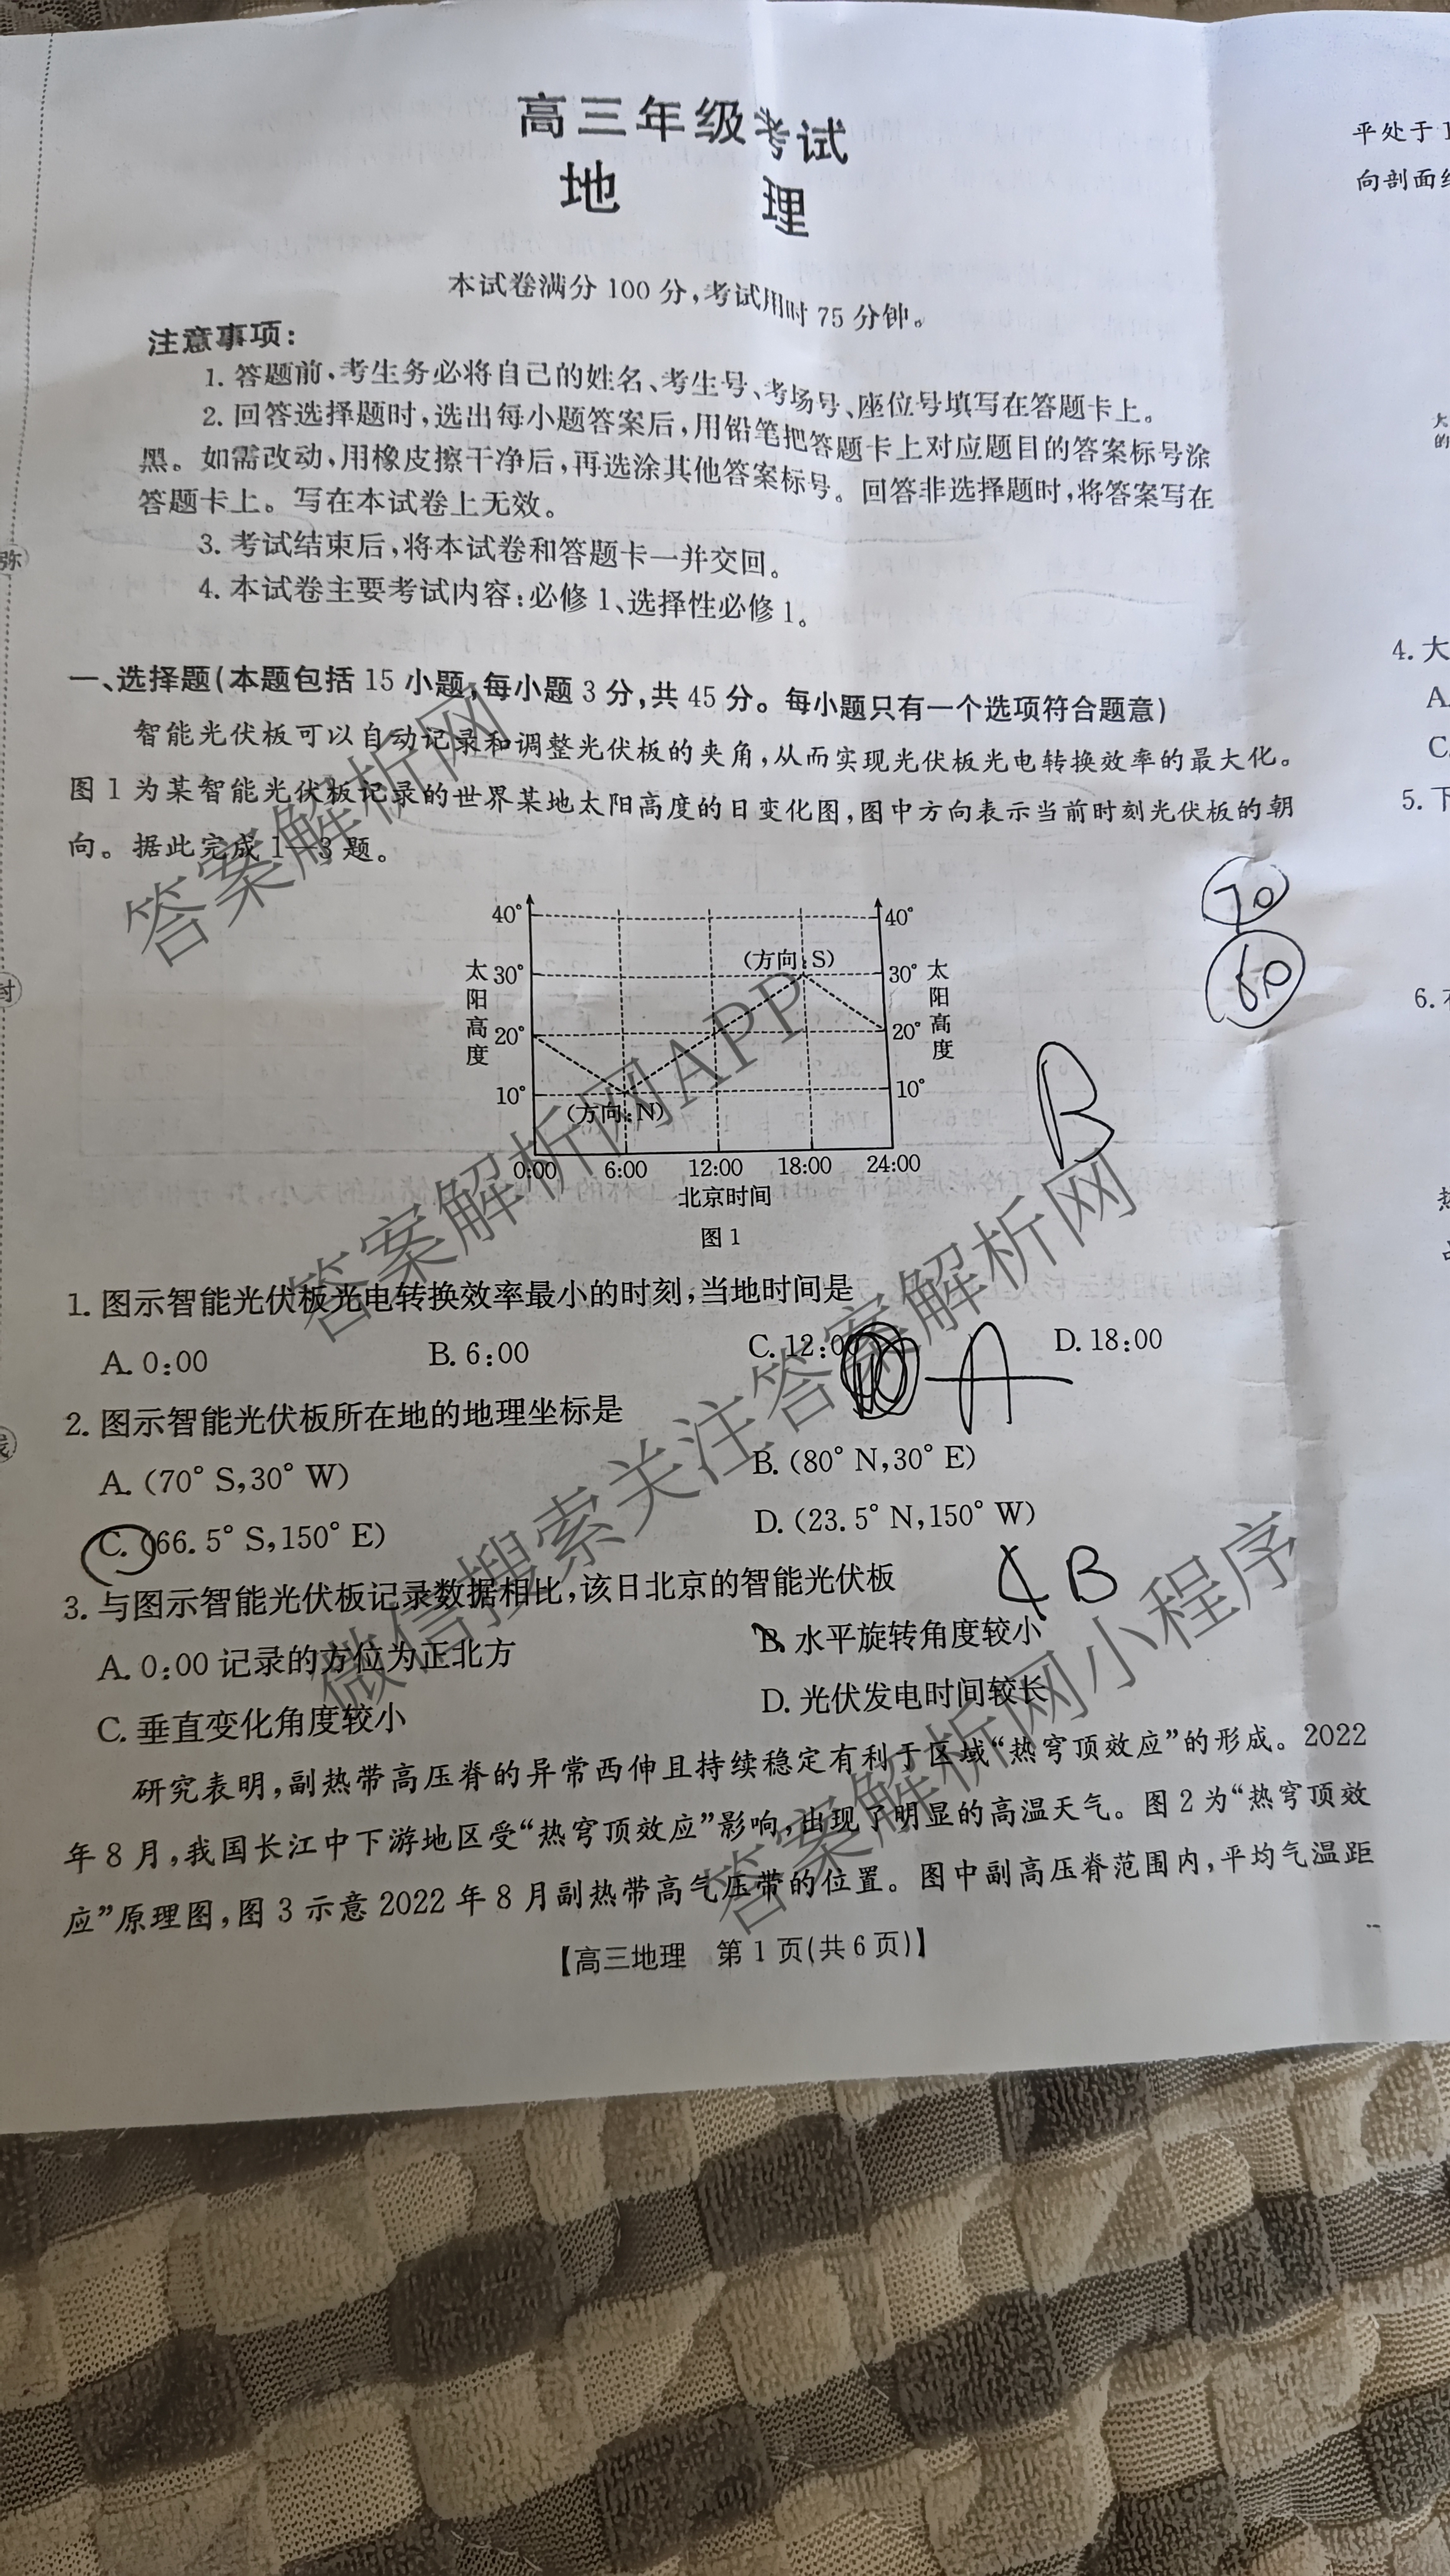 高三年级考试
地 理
本试卷满分100分,考试用时75分钟。
注意事项:
1. 答题前,考生务必将自己的姓名、考生号、考场号、座位号填写在答题卡上。
2. 回答选择题时,选出每小题答案后,用铅笔把答题卡上对应题目的答案标号涂
黑。如需改动,用橡皮擦干净后,再选涂其他答案标号。回答非选择题时,将答案写在
答题卡上。写在本试卷上无效。
3. 考试结束后,将本试卷和答题卡一并交回。
4. 本试卷主要考试内容:必修1、选择性必修1。
一、选择题(本题包括15小题,每小题3分,共45分。每小题只有一个选项符合题意)
智能光伏板可以自动记录和调整光伏板的夹角,从而实现光伏板光电转换效率的最大化。
图1为某智能光伏板记录的世界某地太阳高度的日变化图,图中方向表示当前时刻光伏板的朝
向。据此完成1—3题。
40° 40°
(方向:S)
太阳高度 30° 30° 太阳高度
20° 20°
10° 10°
(方向:N)
0:00 6:00 12:00 18:00 24:00
北京时间
图1
70
60
B
1. 图示智能光伏板光电转换效率最小的时刻,当地时间是
A. 0:00 B. 6:00 C. 12:00 D. 18:00
A
2. 图示智能光伏板所在地的地理坐标是
A. (70° S,30° W) B. (80° N,30° E)
C. (66.5° S,150° E) D. (23.5° N,150° W)
3. 与图示智能光伏板记录数据相比,该日北京的智能光伏板
B
A. 0:00记录的方位为正北方 B. 水平旋转角度较小
C. 垂直变化角度较小 D. 光伏发电时间较长
研究表明,副热带高压脊的异常西伸且持续稳定有利于区域“热穹顶效应”的形成。2022
年8月,我国长江中下游地区受“热穹顶效应”影响,出现了明显的高温天气。图2为“热穹顶效
应”原理图,图3示意2022年8月副热带高气压带的位置。图中副高压脊范围内,平均气温距
【高三地理 第1页(共6页)】
平处于
向剖面
4. 大
A.
C.
5. 下
6.
弥
封
答案解析网
答案解析网APP
微信搜索关注答案解析网
答案解析网小程序